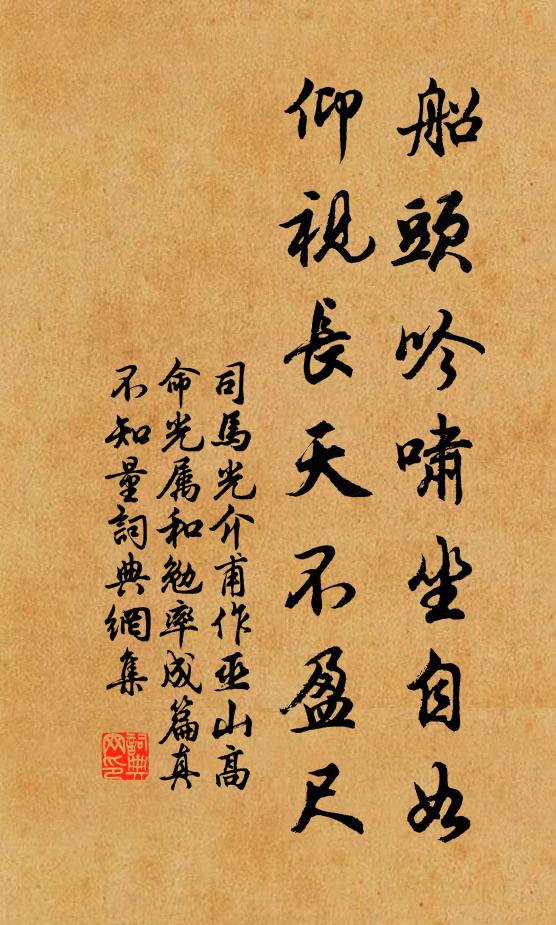 船頭吟嘯坐自如
仰視長天不盈尺
司馬光介甫作巫山高
命光属和勉率成篇真
不知量詞典網集
詞典
网印